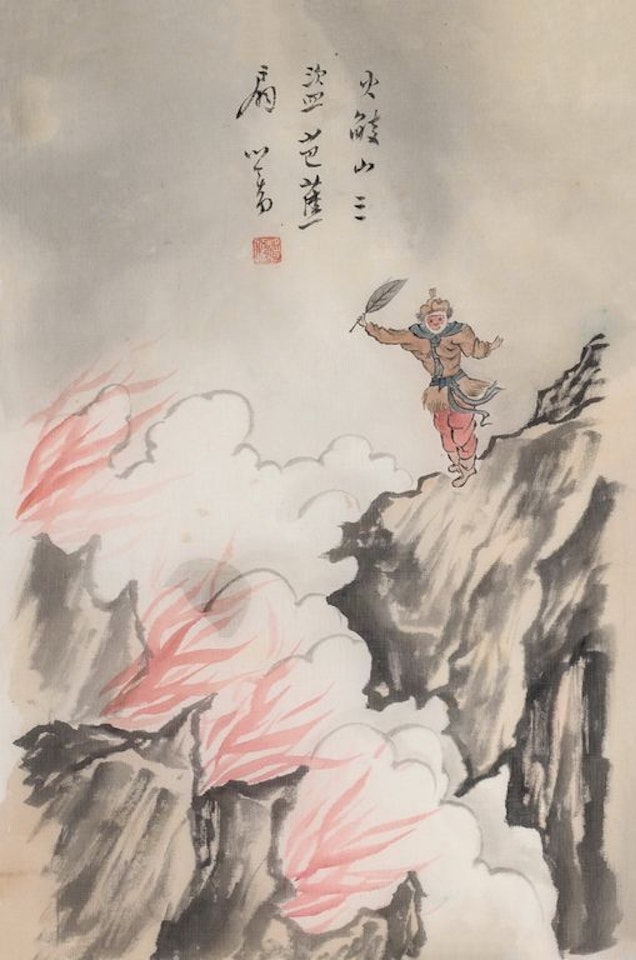 火燄山三
盜芭蕉
扇 心畬